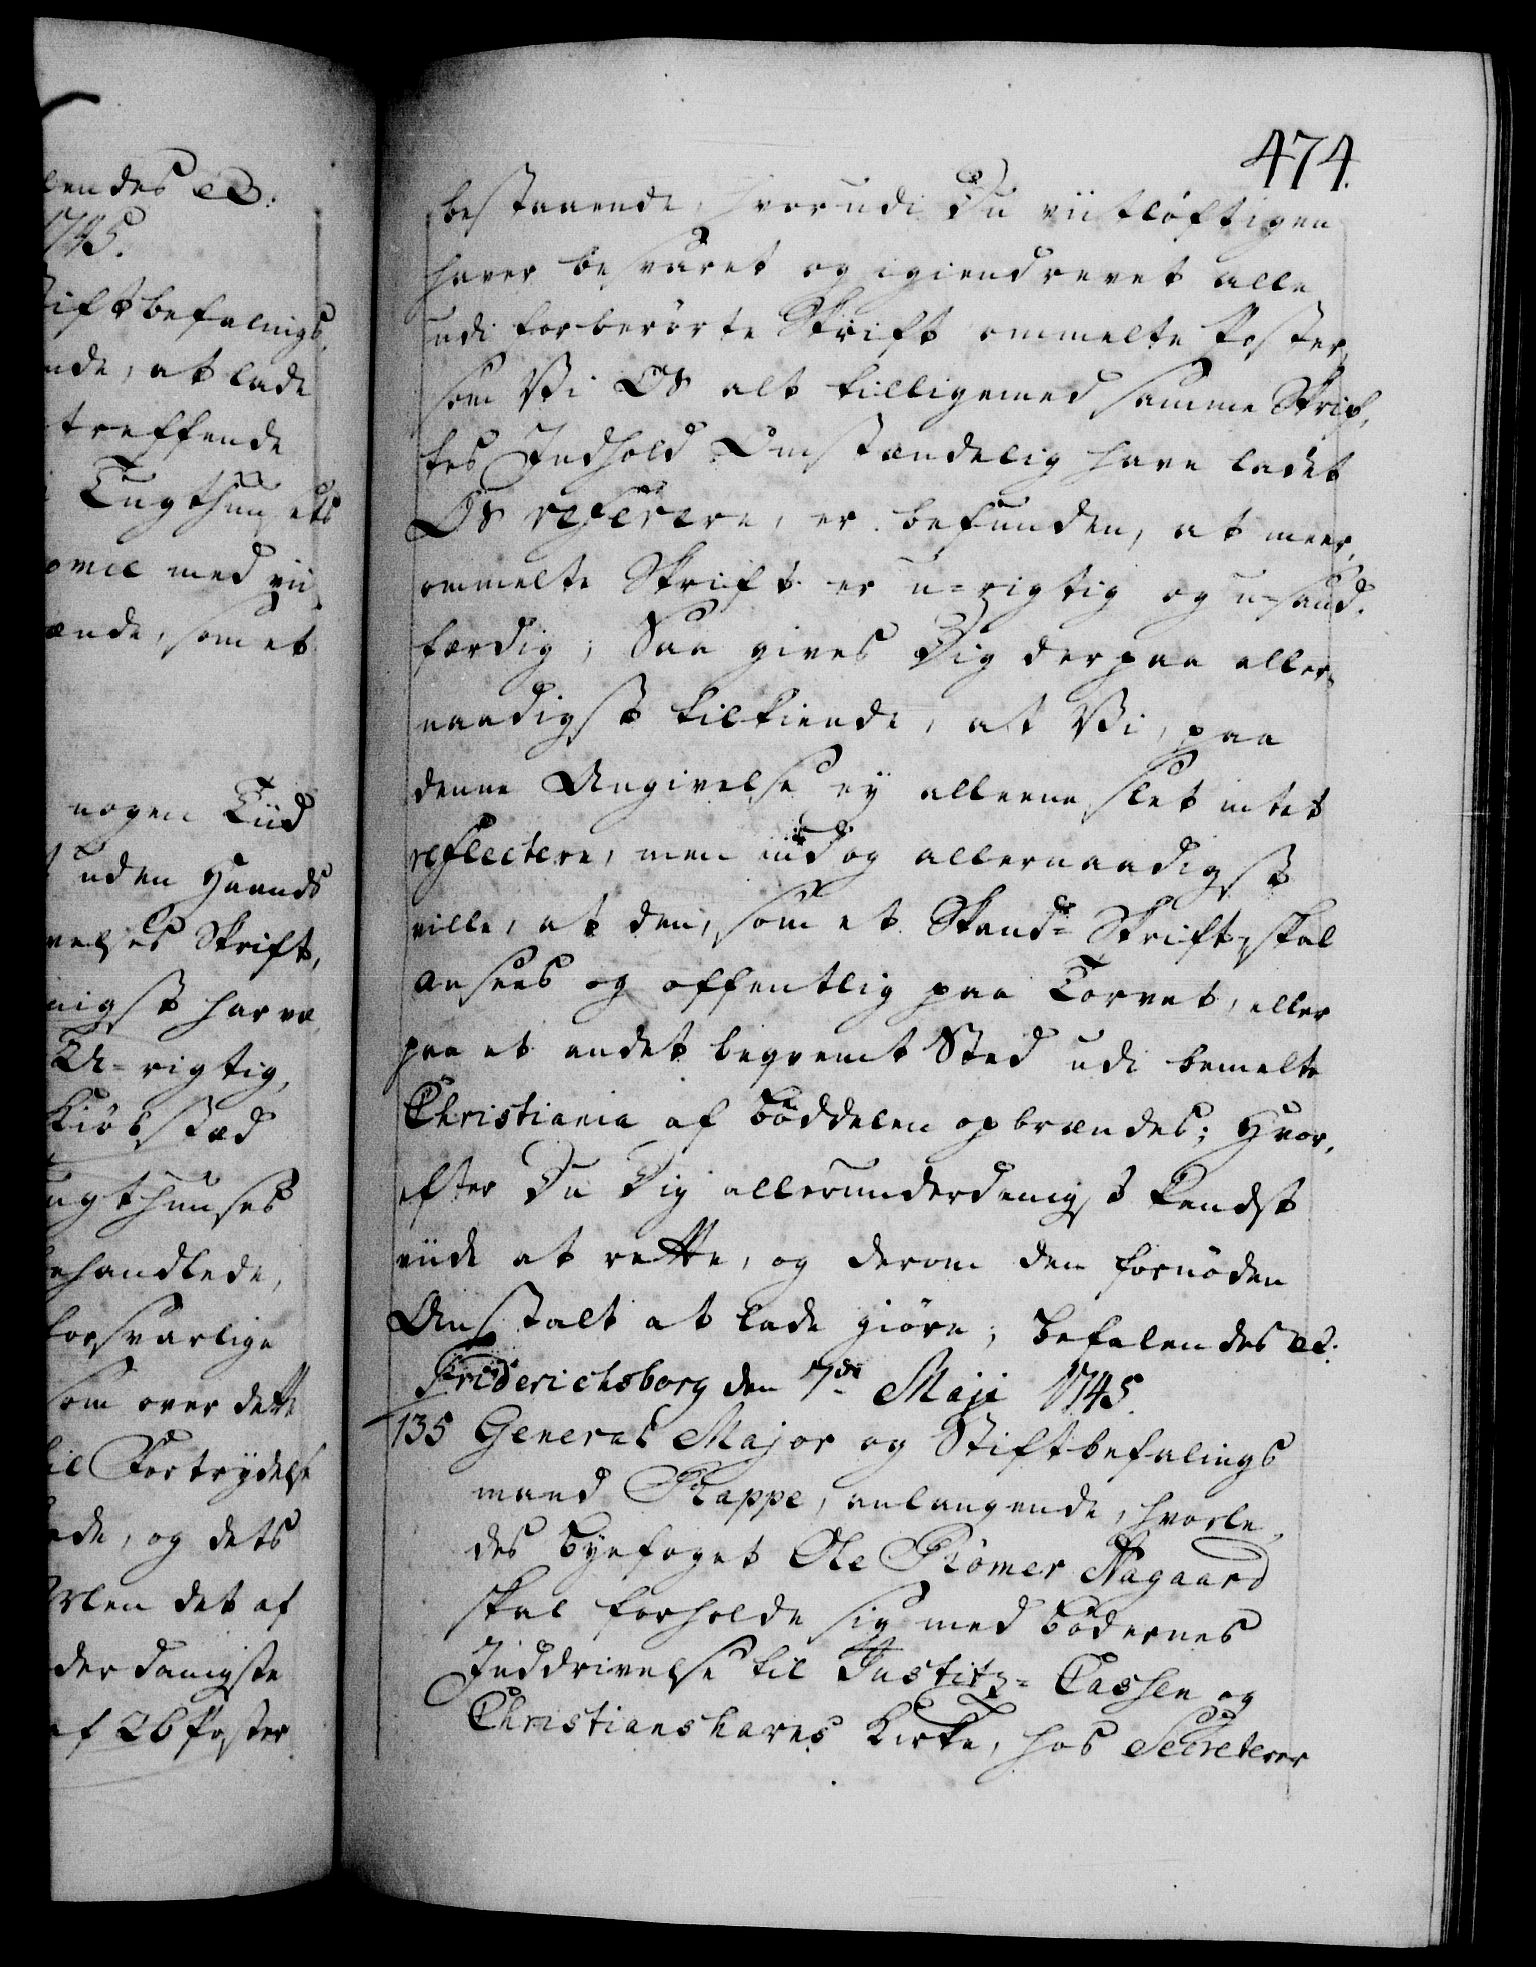 lendes etc:
1745.
Stiftbefalings
nde, at lade
treffende
i Tugthusets
omme med vii
ende, som et
nogen Tiid
uden Haands
velses Skrift,
nigst har væ
U-rigtig,
Kiøbstæd
ugthuuses
behandlede,
forsvarlige
som over dette
til Fortrydelse
ede, og dets
Men det af
derdanigste
af 26 Poster
474.
bestaaende, hvorudi Du viitløftigen
haver besvaret og igiendrevet alle
udi forberørte Skrift ommelte Poster,
som Vi Os alt tilligemed samme Skrif,
tes Indhold Omstændelig have ladet
Os referere, er befunden, at meer,
ommelte Skrift er u-rigtig og u-sand,
færdig; Saa gives Dig derpaa aller,
naadigst tilkiende, at Vi, paa
denne Angivelse ey alleene slet intet
reflectere, men end og allernaadigst
ville, at den, som et Skand-Skrift, skal
ansees og offentlig paa Torvet, eller
paa et andet beqvemt Sted udi bemelte
Christiania af Bøddelen opbrændes; Hvor,
efter Du Dig allerunderdanigst kandst
viide at rette, og derom den fornøden
Anstalt at lade giøre; Befalendes etc:
Friderichsborg den 7de Maji 1745.
135 General Major og Stiftbefalings
mand Rappe, anlangende, hvorle,
des Byefoget Ole Rømer Aagaard
skal forholde sig med Bødernes
Inddrivelse til Justitz-Cassen og
Christianshavns Kirke, hos Secreterer